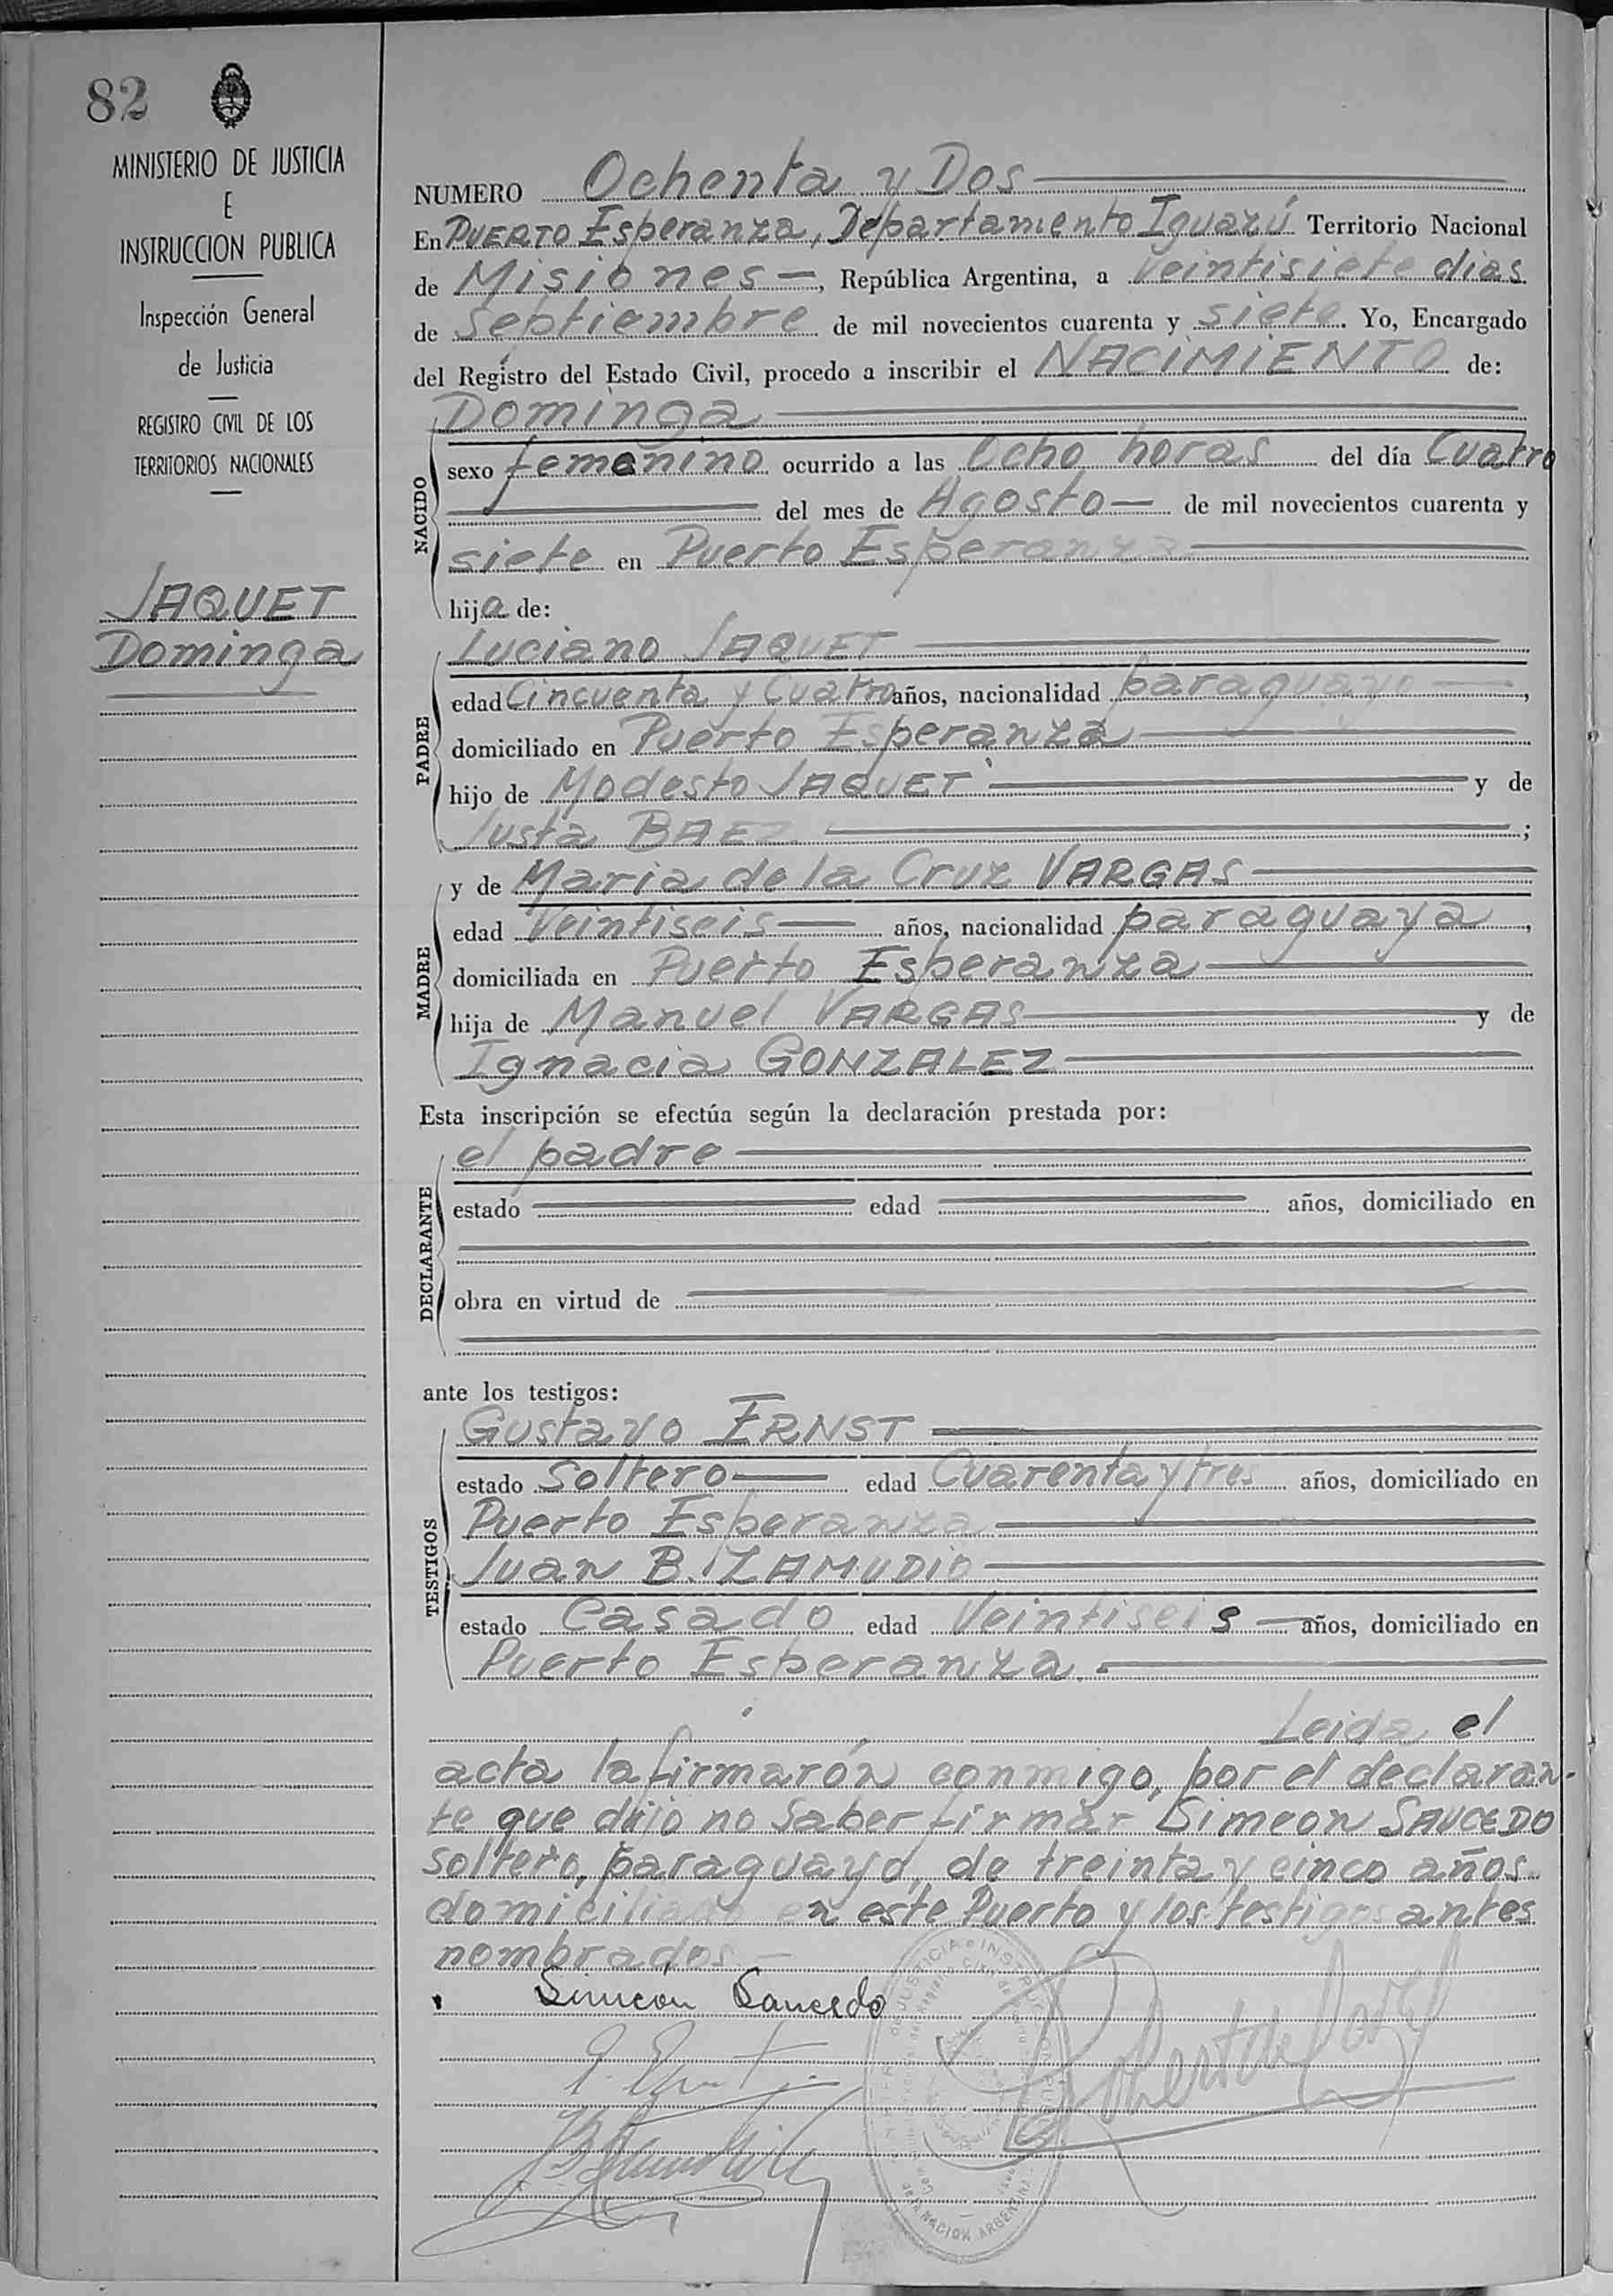 82
MINISTERIO DE JUSTICIA
E
INSTRUCCION PUBLICA
Inspección General
de Justicia
REGISTRO CIVIL DE LOS
TERRITORIOS NACIONALES
JAQUET
Dominga
NUMERO Ochenta y Dos
En PUERTO Esperanza, Departamento Iguazú Territorio Nacional
de Misiones —, República Argentina, a Veintisiete dias
de Septiembre de mil novecientos cuarenta y siete. Yo, Encargado
del Registro del Estado Civil, procedo a inscribir el NACIMIENTO de:
Dominga
NACIDO
sexo femenino ocurrido a las Ocho horas del día Cuatro
del mes de Agosto — de mil novecientos cuarenta y
siete en Puerto Esperanza
hija de:
Luciano JAQUET
PADRE
edad Cincuenta y Cuatro años, nacionalidad paraguayo —,
domiciliado en Puerto Esperanza
hijo de Modesto JAQUET y de
Justa BAEZ ;
y de Maria de la Cruz VARGAS
MADRE
edad Veintiseis — años, nacionalidad paraguaya,
domiciliada en Puerto Esperanza
hija de Manuel VARGAS y de
Ignacia GONZALEZ
Esta inscripción se efectúa según la declaración prestada por:
el padre
DECLARANTE
estado edad años, domiciliado en
obra en virtud de
ante los testigos:
Gustavo ERNST
TESTIGOS
estado Soltero — edad Cuarenta y tres años, domiciliado en
Puerto Esperanza
Juan B. ZAMUDIO
estado Casado edad Veintiseis — años, domiciliado en
Puerto Esperanza.
Leida el
acta la firmarón conmigo, por el declaran-
te que dijo no saber firmar Simeon SAUCEDO
soltero, paraguayo, de treinta y cinco años
domiciliado en este Puerto y los testigos antes
nombrados.—
Simeon Saucedo